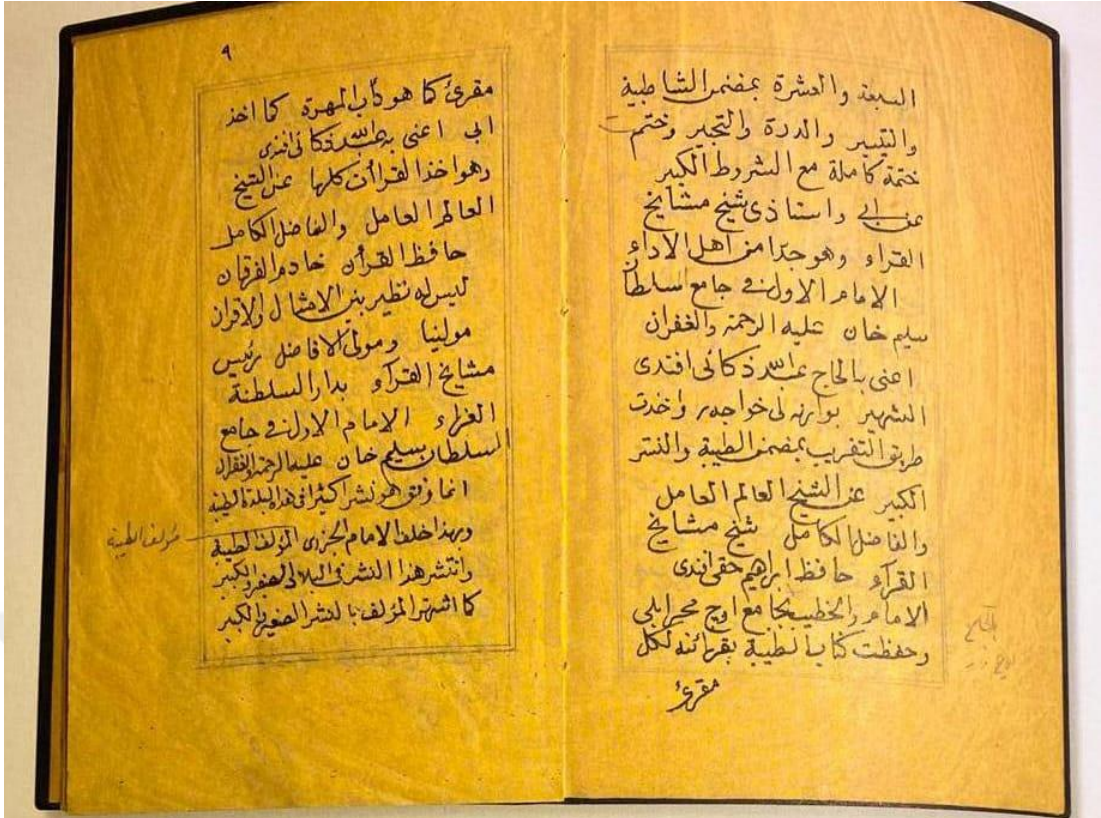 السبعة والعشرة بمضمن الشاطبية
والتيسير والدرة والتحبير وختمت
ختمة كاملة مع الشروط الكبير
عن ابي واستاذى شيخ مشايخ
القراء وهو جدّا من اهل الاداء
الامام الاول فى جامع سلطان
سليم خان عليه الرحمة والغفران
اعنى بالحاج عبد الله ذكائى افندى
الشهير خواجه واخذت
طريق التقريب بمضمن الطيبة والنشر
الكبير عن الشيخ العالم العامل
والفاضل الكامل شيخ مشايخ
القرآء حافظ ابراهيم حقى افندى
الامام والخطيب بجامع اوچ محرابلى
وحفظت كتاب الطيبة بقرائته لكل
مقرئ
٩
مقرئ كما هو دأب المهرة كما اخذ
ابى اعنى به عبد الله ذكائى افندى
وهو اخذ القرأن كلها عن الشيخ
العالم العامل والفاضل الكامل
حافظ القرأن خادم الفرقان
ليس له نظير بين الامثال والاقران
مولينا ومولى الافاضل رئيس
مشايخ القرآء بدار السلطنة
الغراء الامام الاول فى جامع
السلطان سليم خان عليه الرحمة والغفران
انما وفق هو نشرا كثيرا فى هذه البلدة الطيبة
وبهذا خلف الامام الجزرى المؤلف الطيبة
مؤلف الطيبة
وانتشر هذا النشر فى البلاد الصغير والكبير
كما اشتهر المؤلف بالنشر الصغير والكبير